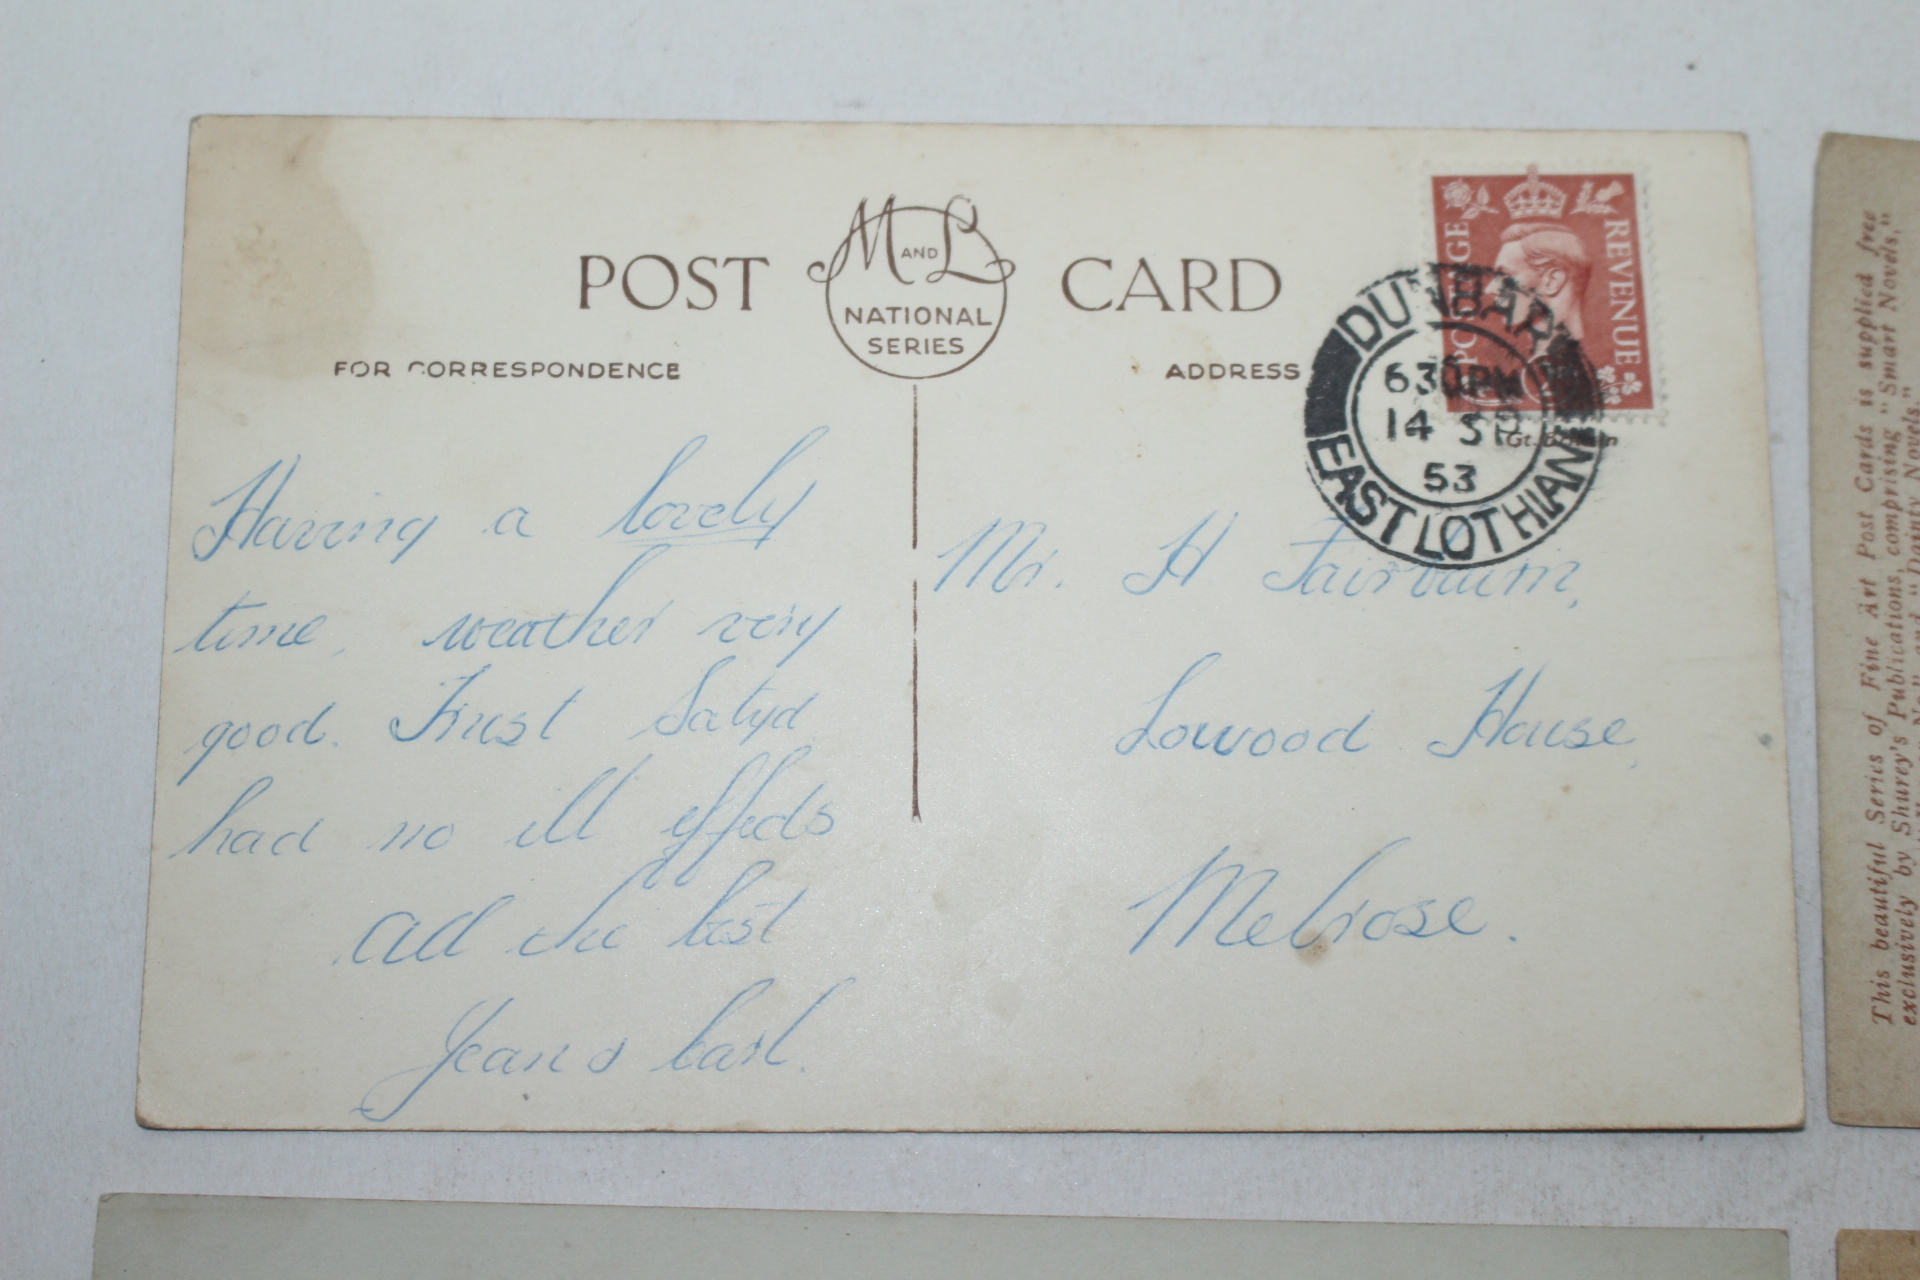 POST CARD
M AND L
NATIONAL
SERIES
FOR CORRESPONDENCE
ADDRESS
POSTAGE REVENUE
DUNBAR
630PM
14 SP
53
EAST LOTHIAN
Gt. Britain
Having a lovely
time, weather very
good. Trust Satyd
had no ill effects
All the best
Jean &
Mr. H Fairbairn,
Lowood House,
Melrose.
This beautiful Series of Fine Art Post Cards is supplied free
exclusively by Shurey's Publications, comprising "Smart Novels,"
and "Dainty Novels."